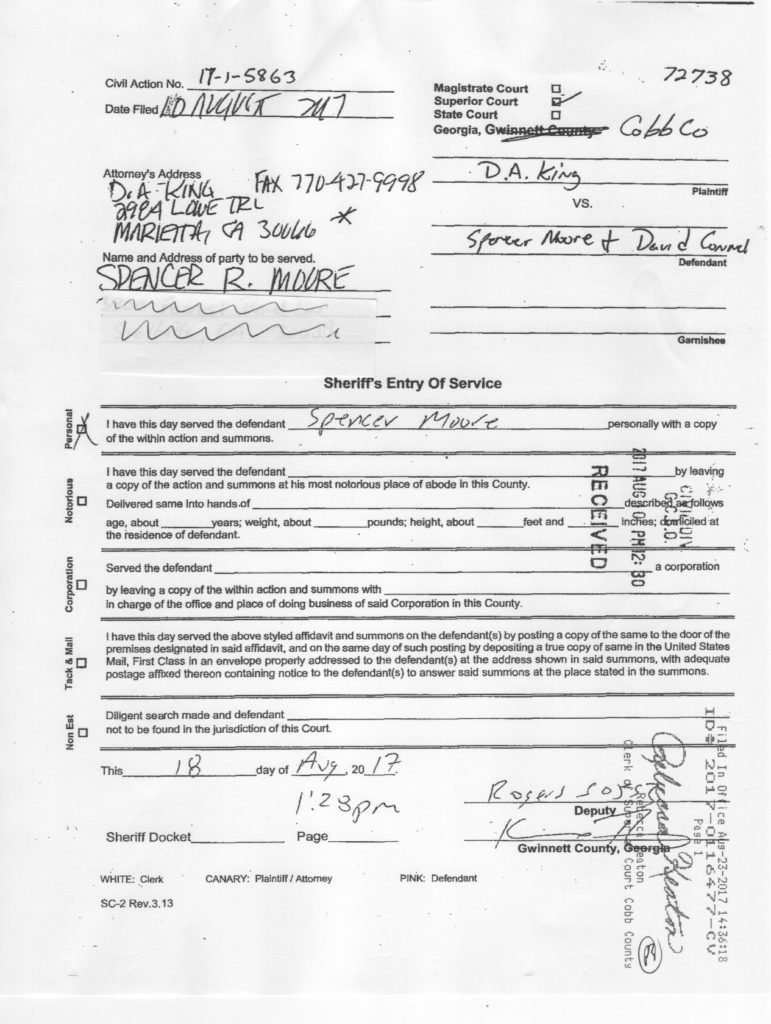 72738
Civil Action No. 17-1-5863
Date Filed 10 AUGUST 2017
Magistrate Court
Superior Court
State Court
Georgia, Gwinnett County Cobb Co
Attorney's Address
D.A. KING FAX 770-427-9998
2984 LOWE TRL
MARIETTA, GA 30066 *
D.A. King
Plaintiff
VS.
Spencer Moore + David Connel
Defendant
Name and Address of party to be served.
SPENCER R. MOORE
Garnishee
Sheriff's Entry Of Service
Personal
I have this day served the defendant Spencer Moore personally with a copy
of the within action and summons.
Notorious
I have this day served the defendant by leaving
a copy of the action and summons at his most notorious place of abode in this County.
Delivered same into hands of described as follows
age, about years; weight, about pounds; height, about feet and inches; domiciled at
the residence of defendant.
RECEIVED
2017 AUG 10 PM 12:30
CIVIL DIV
G.C.S.O.
Corporation
Served the defendant a corporation
by leaving a copy of the within action and summons with
in charge of the office and place of doing business of said Corporation in this County.
Tack & Mail
I have this day served the above styled affidavit and summons on the defendant(s) by posting a copy of the same to the door of the
premises designated in said affidavit, and on the same day of such posting by depositing a true copy of same in the United States
Mail, First Class in an envelope properly addressed to the defendant(s) at the address shown in said summons, with adequate
postage affixed thereon containing notice to the defendant(s) to answer said summons at the place stated in the summons.
Non Est
Diligent search made and defendant
not to be found in the jurisdiction of this Court.
This 18 day of Aug, 2017.
1:23pm
Rogers
Deputy
Sheriff Docket Page
Gwinnett County, Georgia
WHITE: Clerk CANARY: Plaintiff / Attorney PINK: Defendant
SC-2 Rev.3.13
Filed In Office Aug-23-2017 14:36:18
ID# 2017-0116477-CV
Page 1
Rebecca Keaton
Rebecca Keaton
Clerk of Superior Court Cobb County